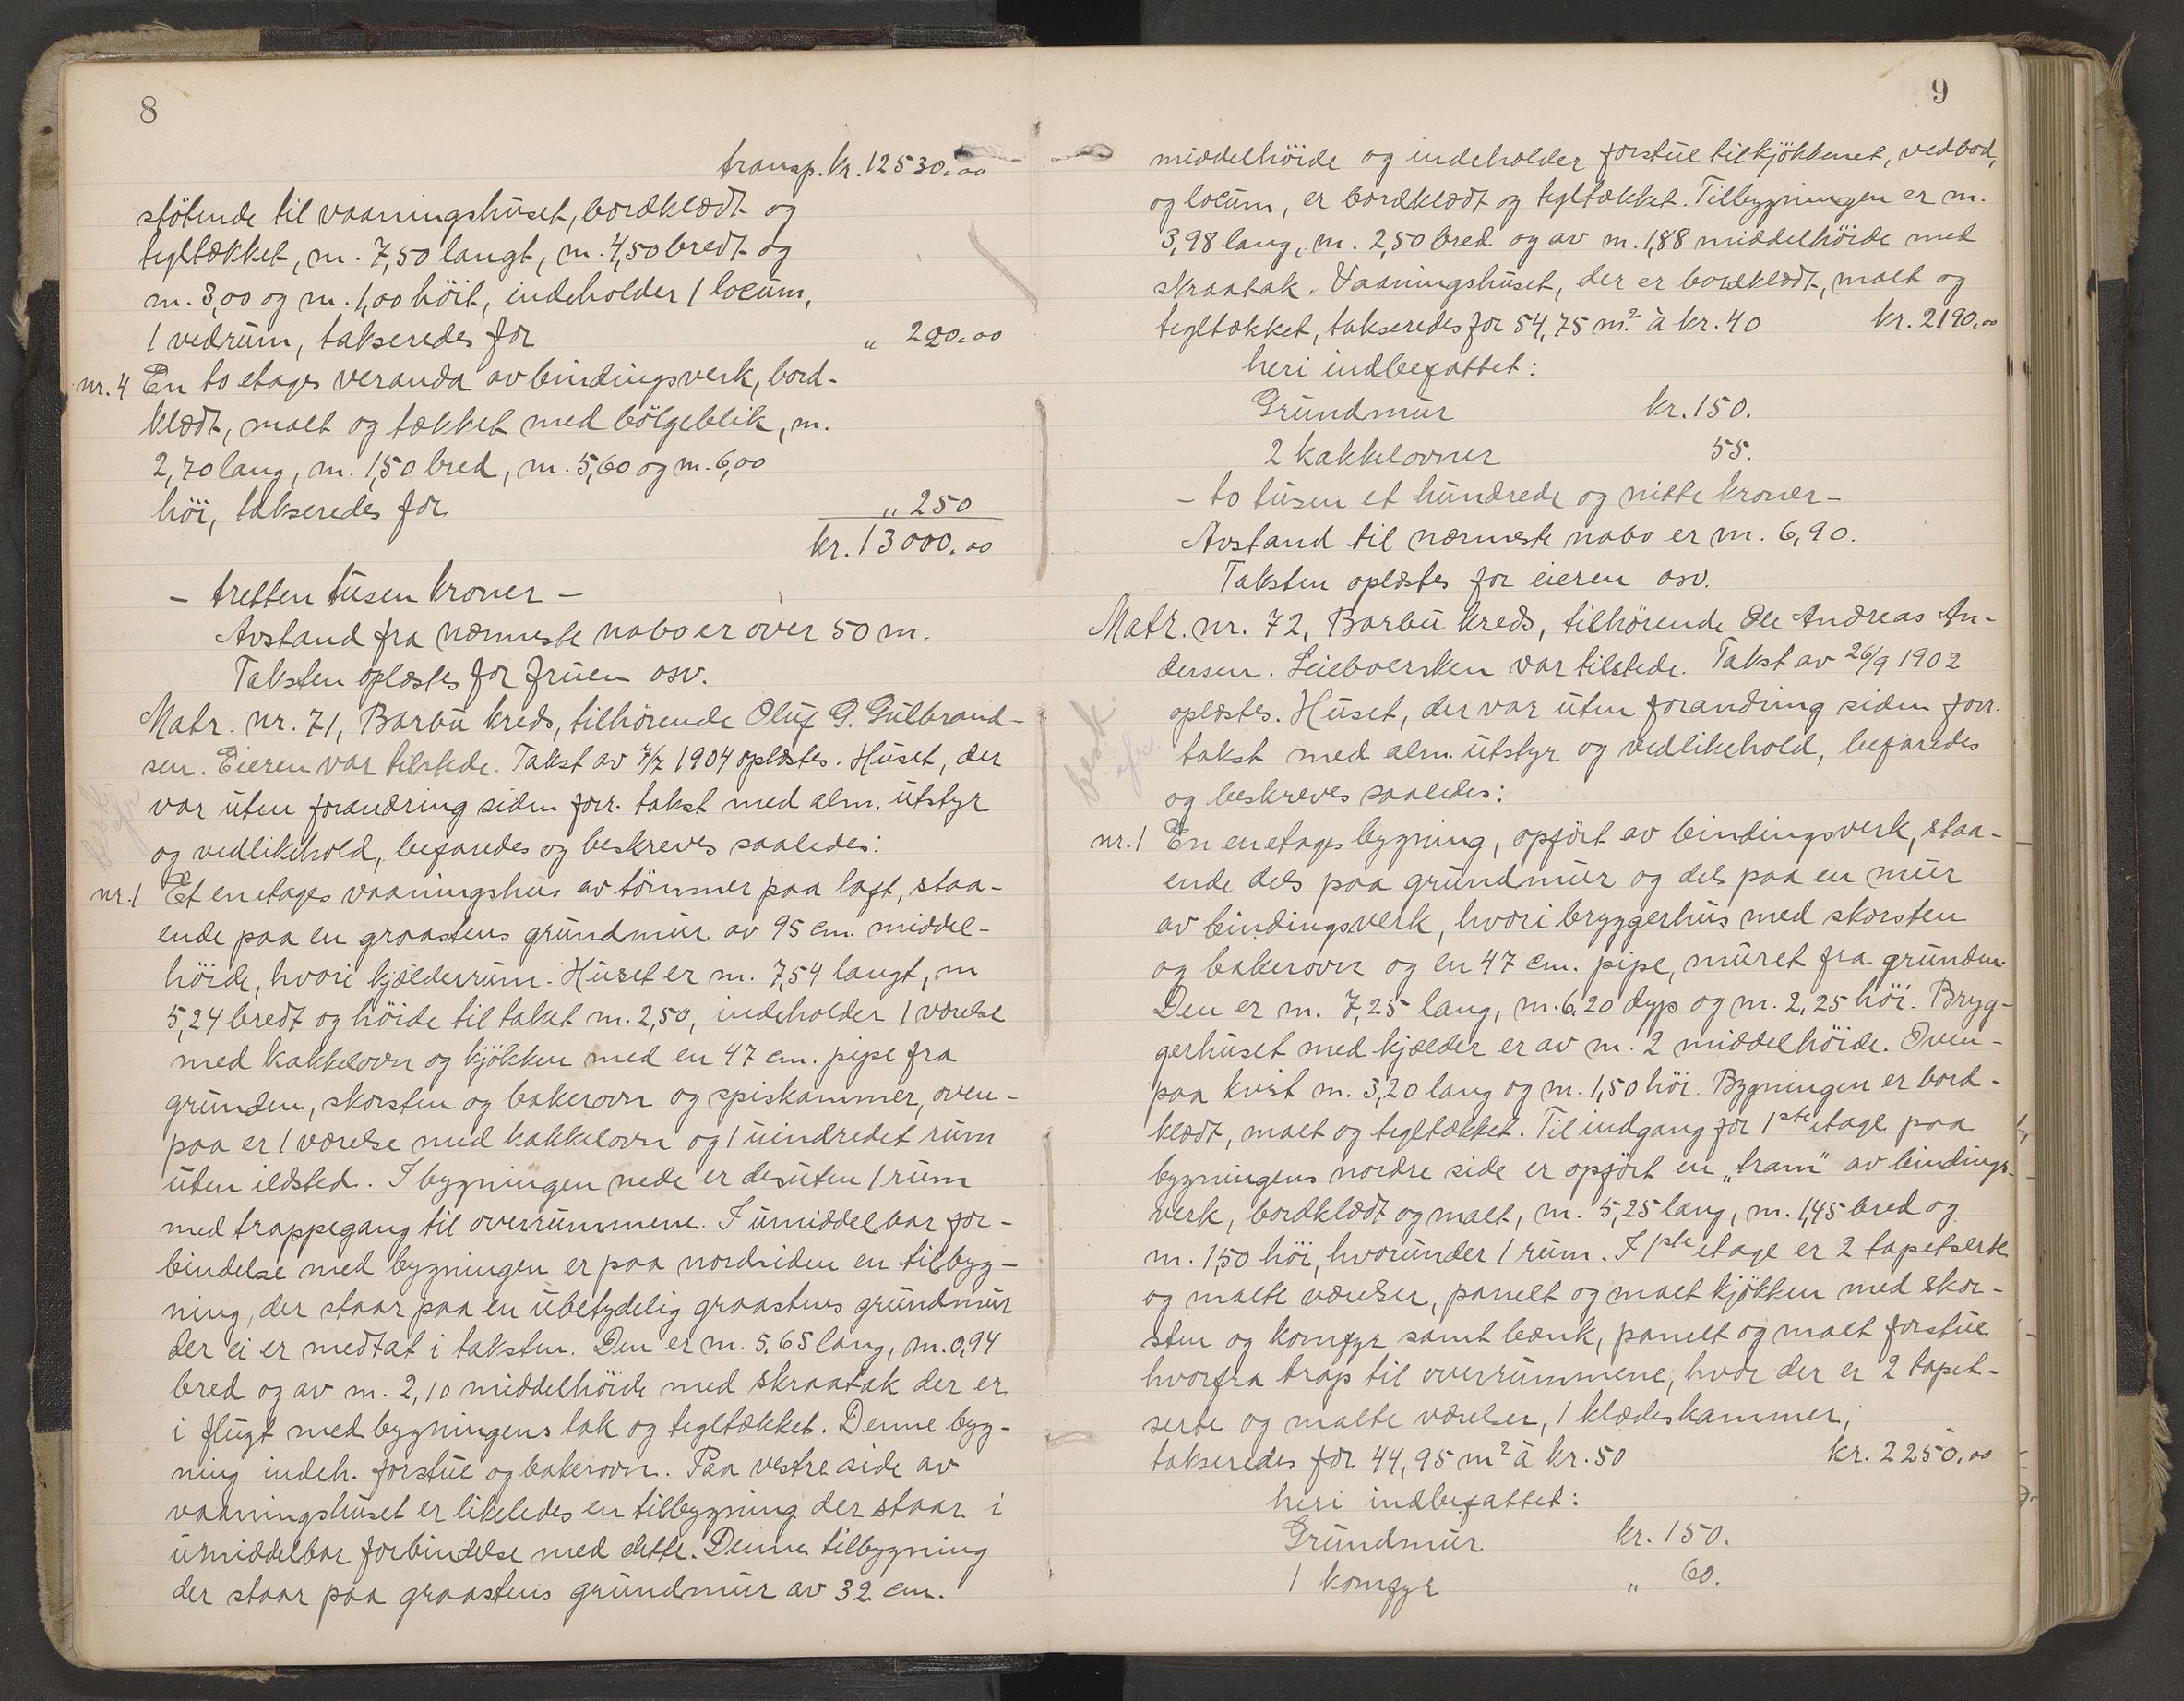 8
transp. kr. 12530.00
stötende til vaaningshuset, bordklædt og
tegltækket, m. 7,50 langt, m. 4,50 bredt og
m. 3,00 og m. 1,00 höit, indeholder 1 locum,
1 vedrum, takseredes for " 220.00
nr. 4 En to etages veranda av bindingsverk, bord-
klædt, malt og tækket med bölgeblik, m.
2,70 lang, m. 1,50 bred, m. 5,60 og m. 6,00
höi, takseredes for " 250
kr. 13000.00
- tretten tusen kroner -
Avstand fra nærmeste nabo er over 50 m.
Taksten oplæstes for fruen osv.
Matr. nr. 71, Barbu kreds, tilhörende Oluf G. Gulbrand-
sen. Eieren var tilstede. Takst av 7/7 1904 oplæstes. Huset, der
var uten forandring siden forr. takst med alm. utstyr
og vedlikehold, befaredes og beskreves saaledes:
nr. 1 Et enetages vaaningshus av tömmer paa loft, staa-
ende paa en graastens grundmur av 95 cm. middel-
höide, hvori kjælderrum. Huset er m. 7,54 langt, m
5,24 bredt og höide til taket m. 2,50, indeholder 1 værelse
med kakkelovn og kjökken med en 47 cm. pipe fra
grunden, skorsten og bakerovn og spiskammer, oven-
paa er 1 værelse med kakkelovn og 1 uindredet rum
uten ildsted. I bygningen nede er desuten 1 rum
med trappegang til overrummene. I umiddelbar for-
bindelse med bygningen er paa nordsiden en tilbyg-
ning, der staar paa en ubetydelig graastens grundmur
der ei er medtat i taksten. Den er m. 5,65 lang, m. 0,94
bred og av m. 2,10 middelhöide med skraatak der er
i flugt med bygningens tak og tegltækket. Denne byg-
ning indeh. forstue og bakerovn. Paa vestre side av
vaaningshuset er likeledes en tilbygning der staar i
umiddelbar forbindelse med dette. Denne tilbygning
der staar paa graastens grundmur av 32 cm.
9
middelhöide og indeholder forstue til kjökkenet, vedbod,
og locum, er bordklædt og tegltækket. Tilbygningen er m.
3,98 lang, m. 2,50 bred og av m. 1,88 middelhöide med
skraatak. Vaaningshuset, der er bordklædt, malt og
tegltækket, takseredes for 54,75 m.² à kr. 40 kr. 2190.00
heri indbefattet:
Grundmur kr. 150.
2 kakkelovner 55.
- to tusen et hundrede og nitte kroner -
Avstand til nærmeste nabo er m. 6,90.
Taksten oplæstes for eieren osv.
Matr. nr. 72, Barbu kreds, tilhörende Ole Andreas An-
dersen. Leieboersken var tilstede. Takst av 26/9 1902
oplæstes. Huset, der var uten forandring siden forr.
takst med alm. utstyr og vedlikehold, befaredes
og beskreves saaledes:
nr. 1 En enetages bygning, opfört av bindingsverk, staa-
ende dels paa grundmur og dels paa en mur
av bindingsverk, hvori bryggerhus med skorsten
og bakerovn og en 47 cm. pipe, muret fra grunden.
Den er m. 7,25 lang, m. 6,20 dyp og m. 2,25 höi. Bryg-
gerhuset med kjælder er av m. 2 middelhöide. Oven-
paa kvist m. 3,20 lang og m. 1,50 höi. Bygningen er bord-
klædt, malt og tegltækket. Til indgang for 1ste etage paa
bygningens nordre side er opfört en „tram" av bindings-
verk, bordklædt og malt, m. 5,25 lang, m. 1,45 bred og
m. 1,50 höi, hvorunder 1 rum. I 1ste etage er 2 tapetserte
og malte værelser, panelt og malt kjökken med skor-
sten og komfyr samt bænk, panelt og malt forstue
hvorfra trap til overrummene, hvor der er 2 tapet-
serte og malte værelser, 1 klædeskammer,
takseredes for 44,95 m² à kr. 50 kr. 2250.00
heri indbefattet:
Grundmur kr. 150.
1 komfyr " 60.